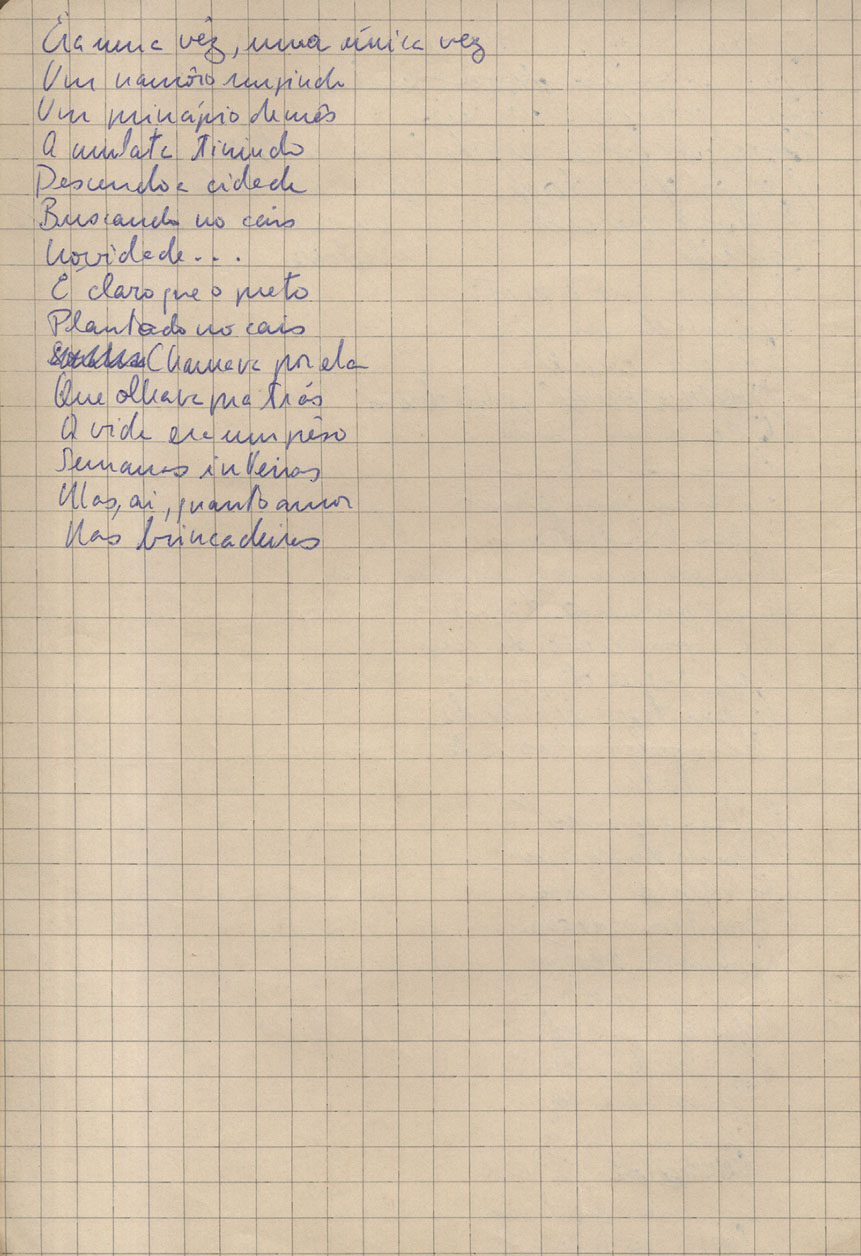 Era uma vêz, uma única vez
Um namôro surgindo
Um princípio de mês
A mulata tinindo
Descendo a cidade
Buscando no cais
Novidade...
É claro que o preto
Plantado no cais
Chamava por ela
Que olhava pra trás
A vida era um pêso
Semanas inteiras
Mas, ai, quanto amor
Nas brincadeiras